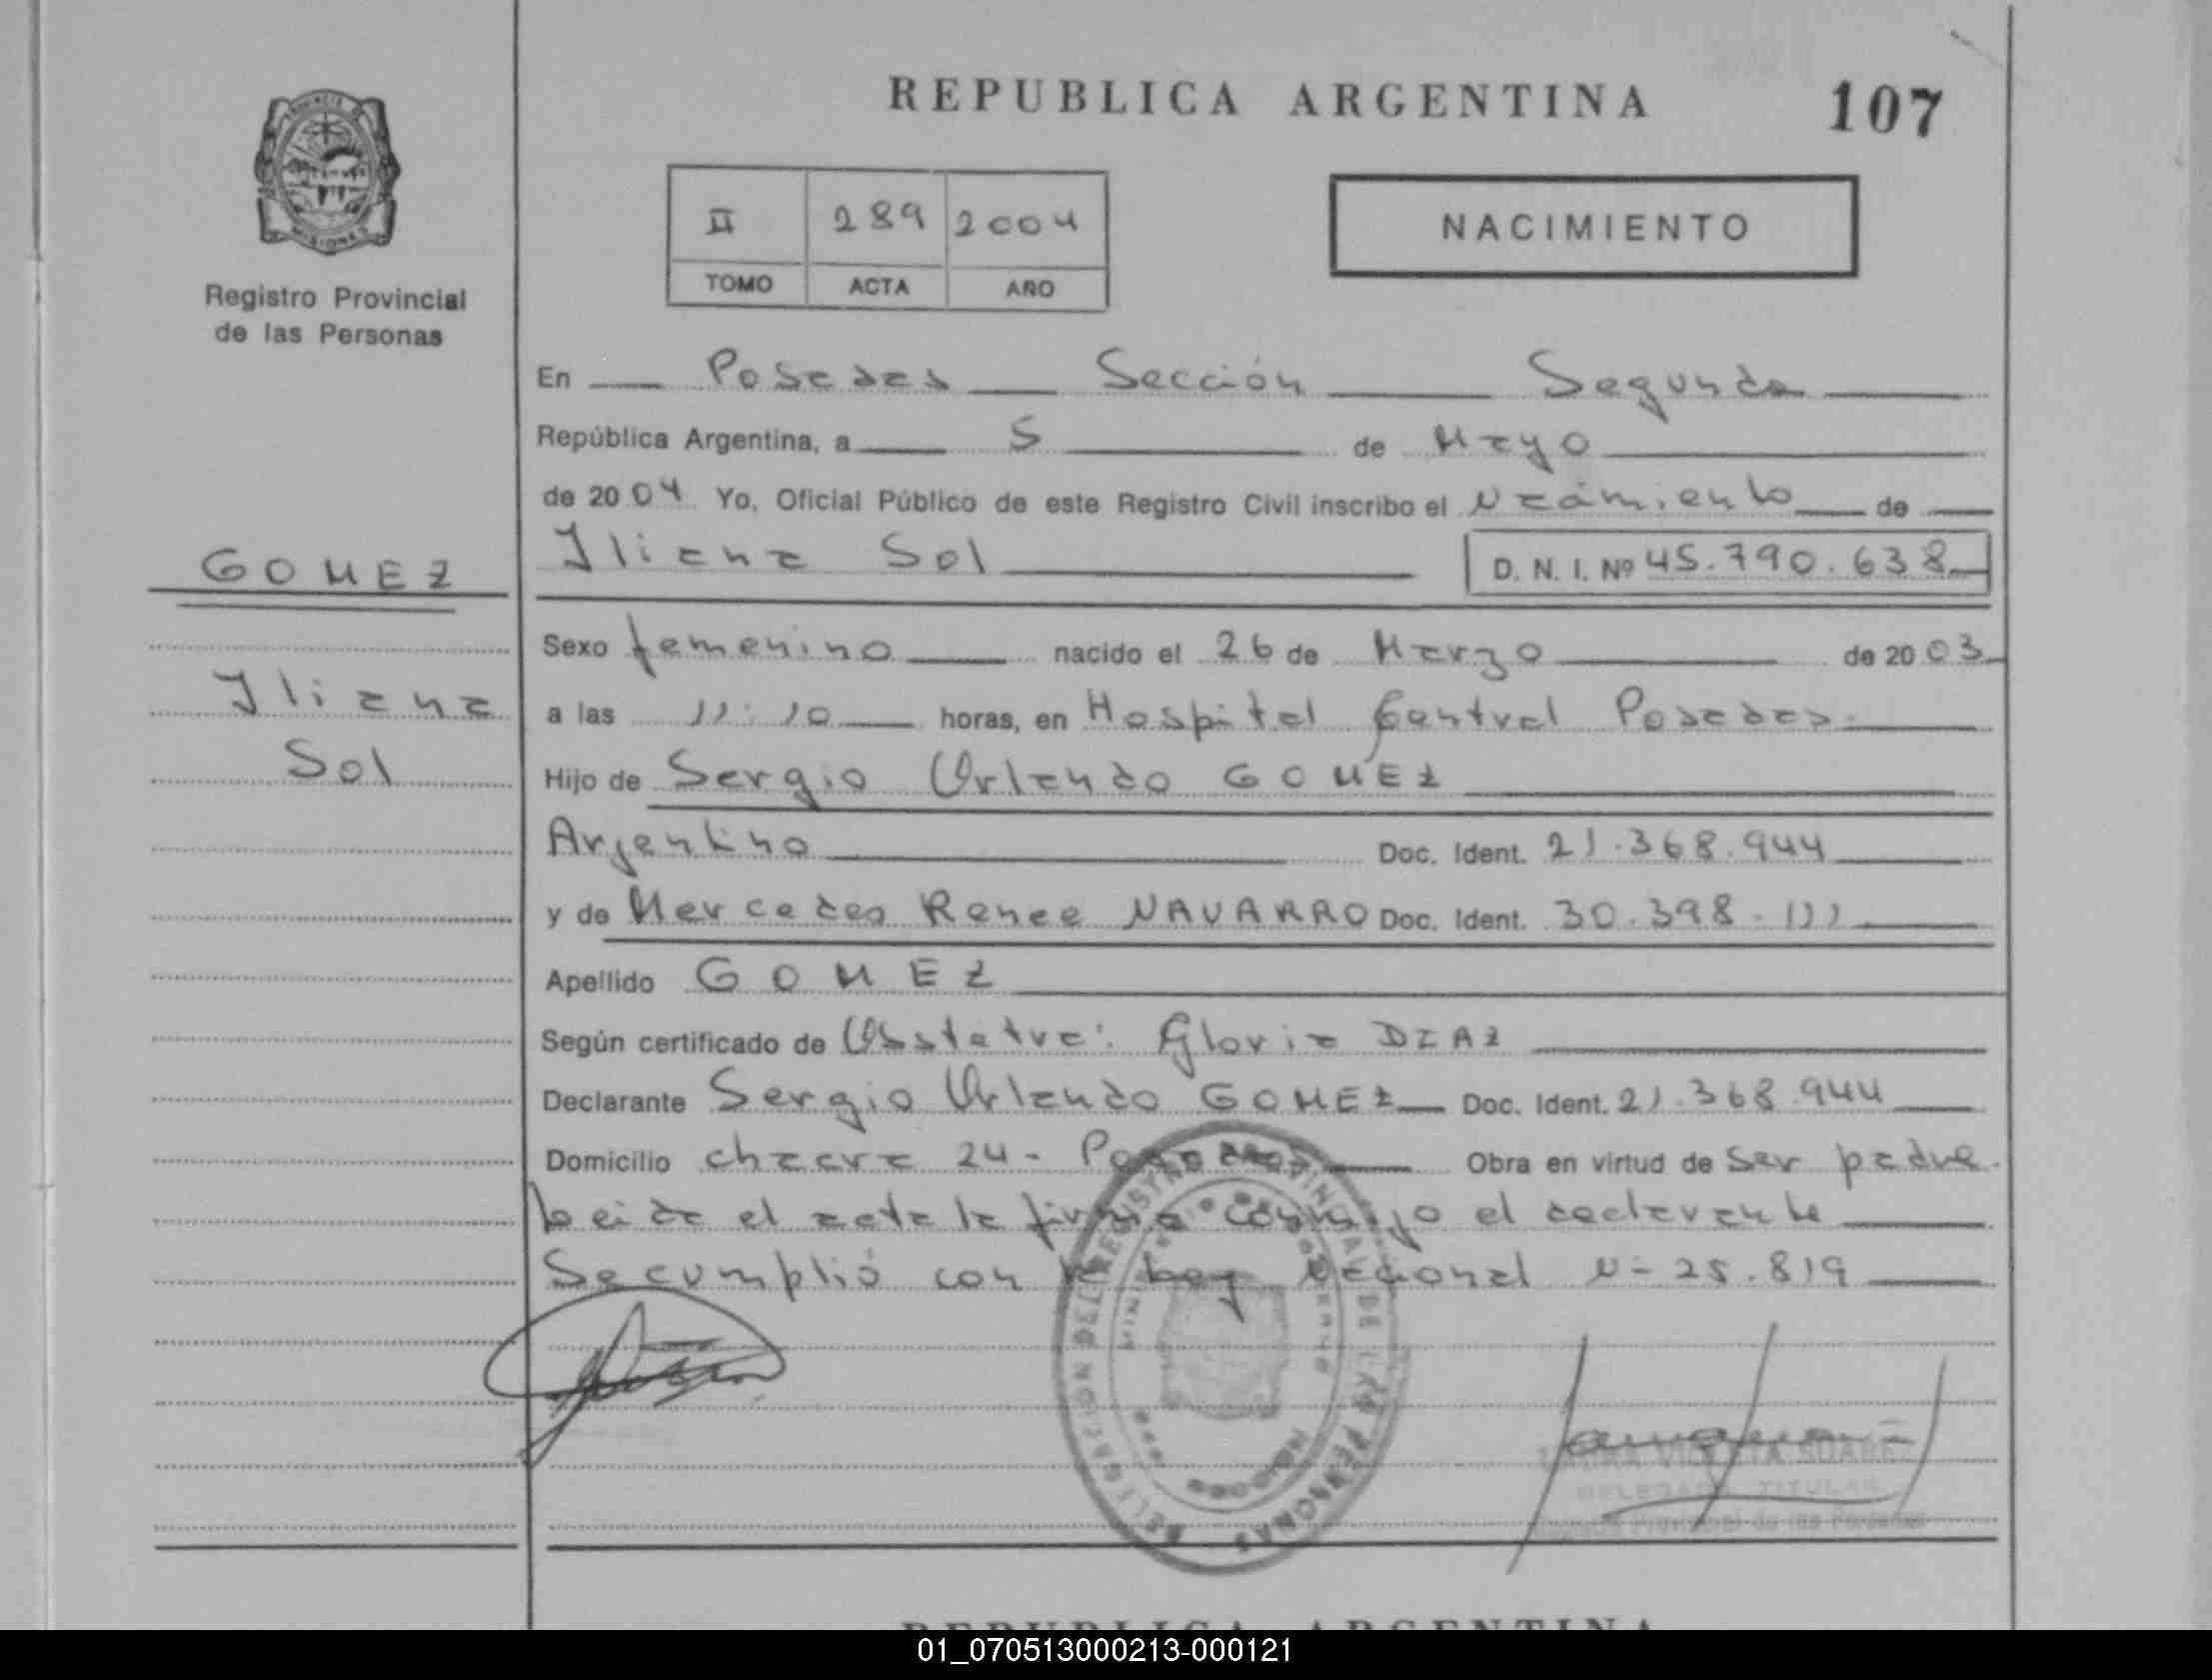 REPUBLICA ARGENTINA
107
PROVINCIA DE
MISIONES
Registro Provincial
de las Personas
II 289 2004
TOMO ACTA AÑO
NACIMIENTO
En Posadas Sección Segunda
República Argentina, a 5 de Mayo
de 2004 Yo, Oficial Público de este Registro Civil inscribo el Nacimiento de
GOMEZ
Iliana Sol
D. N. I. Nº 45.790.638
Sexo femenino nacido el 26 de Marzo de 2003
Iliana
a las 11:10 horas, en Hospital Central Posadas.
Sol
Hijo de Sergio Orlando GOMEZ
Argentino Doc. Ident. 21.368.944
y de Mercedes Renee NAVARRO Doc. Ident. 30.398.111
Apellido GOMEZ
Según certificado de Obstetra: Gloria DIAZ
Declarante Sergio Orlando GOMEZ Doc. Ident. 21.368.944
Domicilio chacra 24 - Posadas Obra en virtud de ser padre.
Leida el acta la firma conmigo el declarante
Se cumplió con la Ley Nacional N= 25.819
DELEGACION DEL REGISTRO PROVINCIAL DE LAS PERSONAS
MISIONES
DELEGADA TITULAR
Registro Provincial de las Personas
REPUBLICA ARGENTINA
01_070513000213-000121